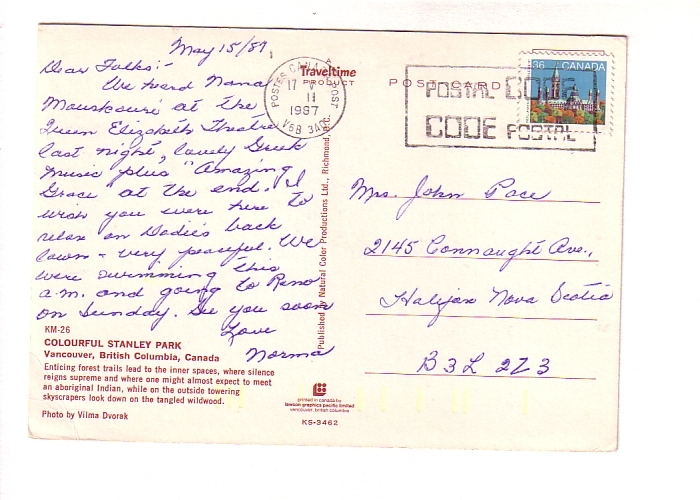 May 15/87
Dear Folks:-
We heard Nana
Mouskouri at the
Queen Elizabeth Theatre
last night, lovely Greek
music plus "Amazing
Grace" at the end. I
wish you were here to
relax on Wadie's back
lawn - very peaceful. We
were swimming this
a.m. and going to Reno
on Sunday. See you soon
Love
Norma
KM-26
COLOURFUL STANLEY PARK
Vancouver, British Columbia, Canada
Enticing forest trails lead to the inner spaces, where silence
reigns supreme and where one might almost expect to meet
an aboriginal Indian, while on the outside towering
skyscrapers look down on the tangled wildwood.
Photo by Vilma Dvorak
Traveltime
PRODUCT
POST CARD
POSTES CANADA POST
17 V
11
1987
V6B 3A
POSTAL CODE
CODE POSTAL
36 CANADA
Published by Natural Color Productions Ltd., Richmond, B.C.
printed in canada by
lawson graphics pacific limited
vancouver, british columbia
KS-3462
Mrs. John Pace
2145 Connaught Ave.,
Halifax Nova Scotia
B3L 2Z3